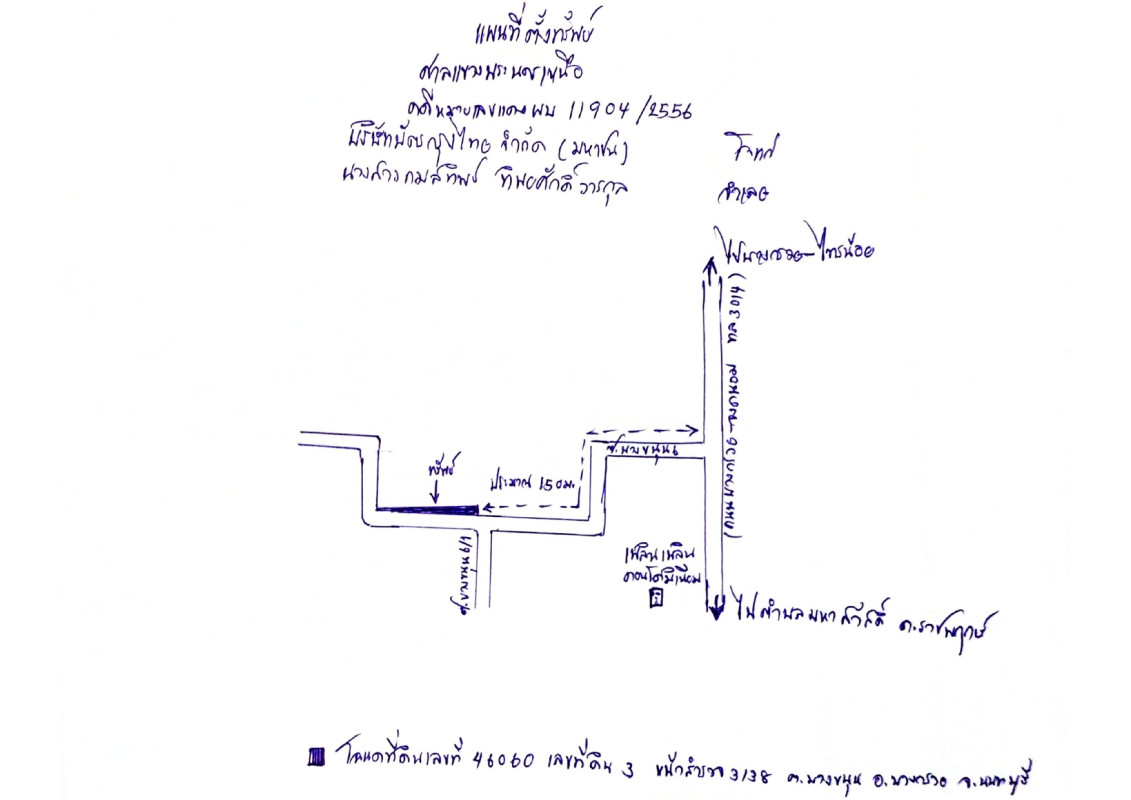 แผนที่ตั้งทรัพย์
ศาลแขวงพระนครเหนือ
คดีหมายเลขแดง ผบ 11904/2556
บริษัทบัตรกรุงไทย จำกัด (มหาชน) โจทก์
นางสาวกมลทิพย์ ทิพยศักดิ์วารกุล จำเลย
ไปบางกรวย-ไทรน้อย
ซ.บางขนุน 6
ทรัพย์
ประมาณ 150 ม.
เพลินเพลิน
คอนโดมิเนียม
ไปตำบลมหาสวัสดิ์ ถ.ราชพฤกษ์
โฉนดที่ดินเลขที่ 46060 เลขที่ดิน 3 หน้าสำรวจ 3138 ต.บางขนุน อ.บางกรวย จ.นนทบุรี